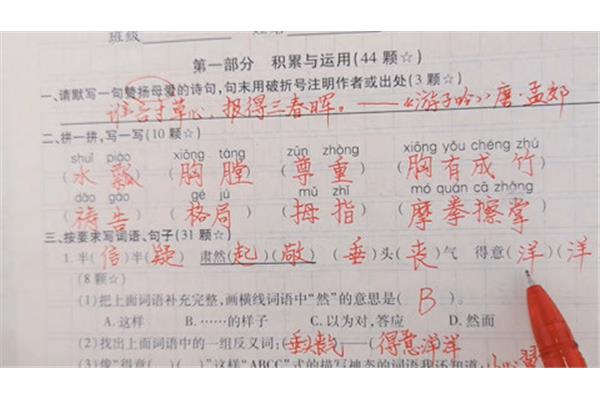 班级
第一部分 积累与运用(44颗☆)
一、请默写一句赞扬母爱的诗句,句末用破折号注明作者或出处(3颗☆)
谁言寸草心,报得三春晖。——《游子吟》唐·孟郊
二、拼一拼,写一写(10颗☆)
shuǐ piáo xiōng táng zūn zhòng xiōng yǒu chéng zhú
(水瓢) (胸膛) (尊重) (胸有成竹)
dǎo gào gé jú mǔ zhǐ mó quán cā zhǎng
(祷告) (格局) (拇指) (摩拳擦掌)
三、按要求写词语、句子(31颗☆)
1.半(信)半(疑) 肃然(起)(敬) (垂)头(丧)气 得意(洋)(洋
(8颗☆)
(1)把上面词语补充完整,画横线词语中“然”的意思是( B )。
A.这样 B.……的样子 C.以为对,答应 D.然而
(2)找出上面词语中的一组反义词:(垂头丧气——(得意洋洋
(3)像“得意( )( )”这样“ABCC”式的描写神态的词语我还知道